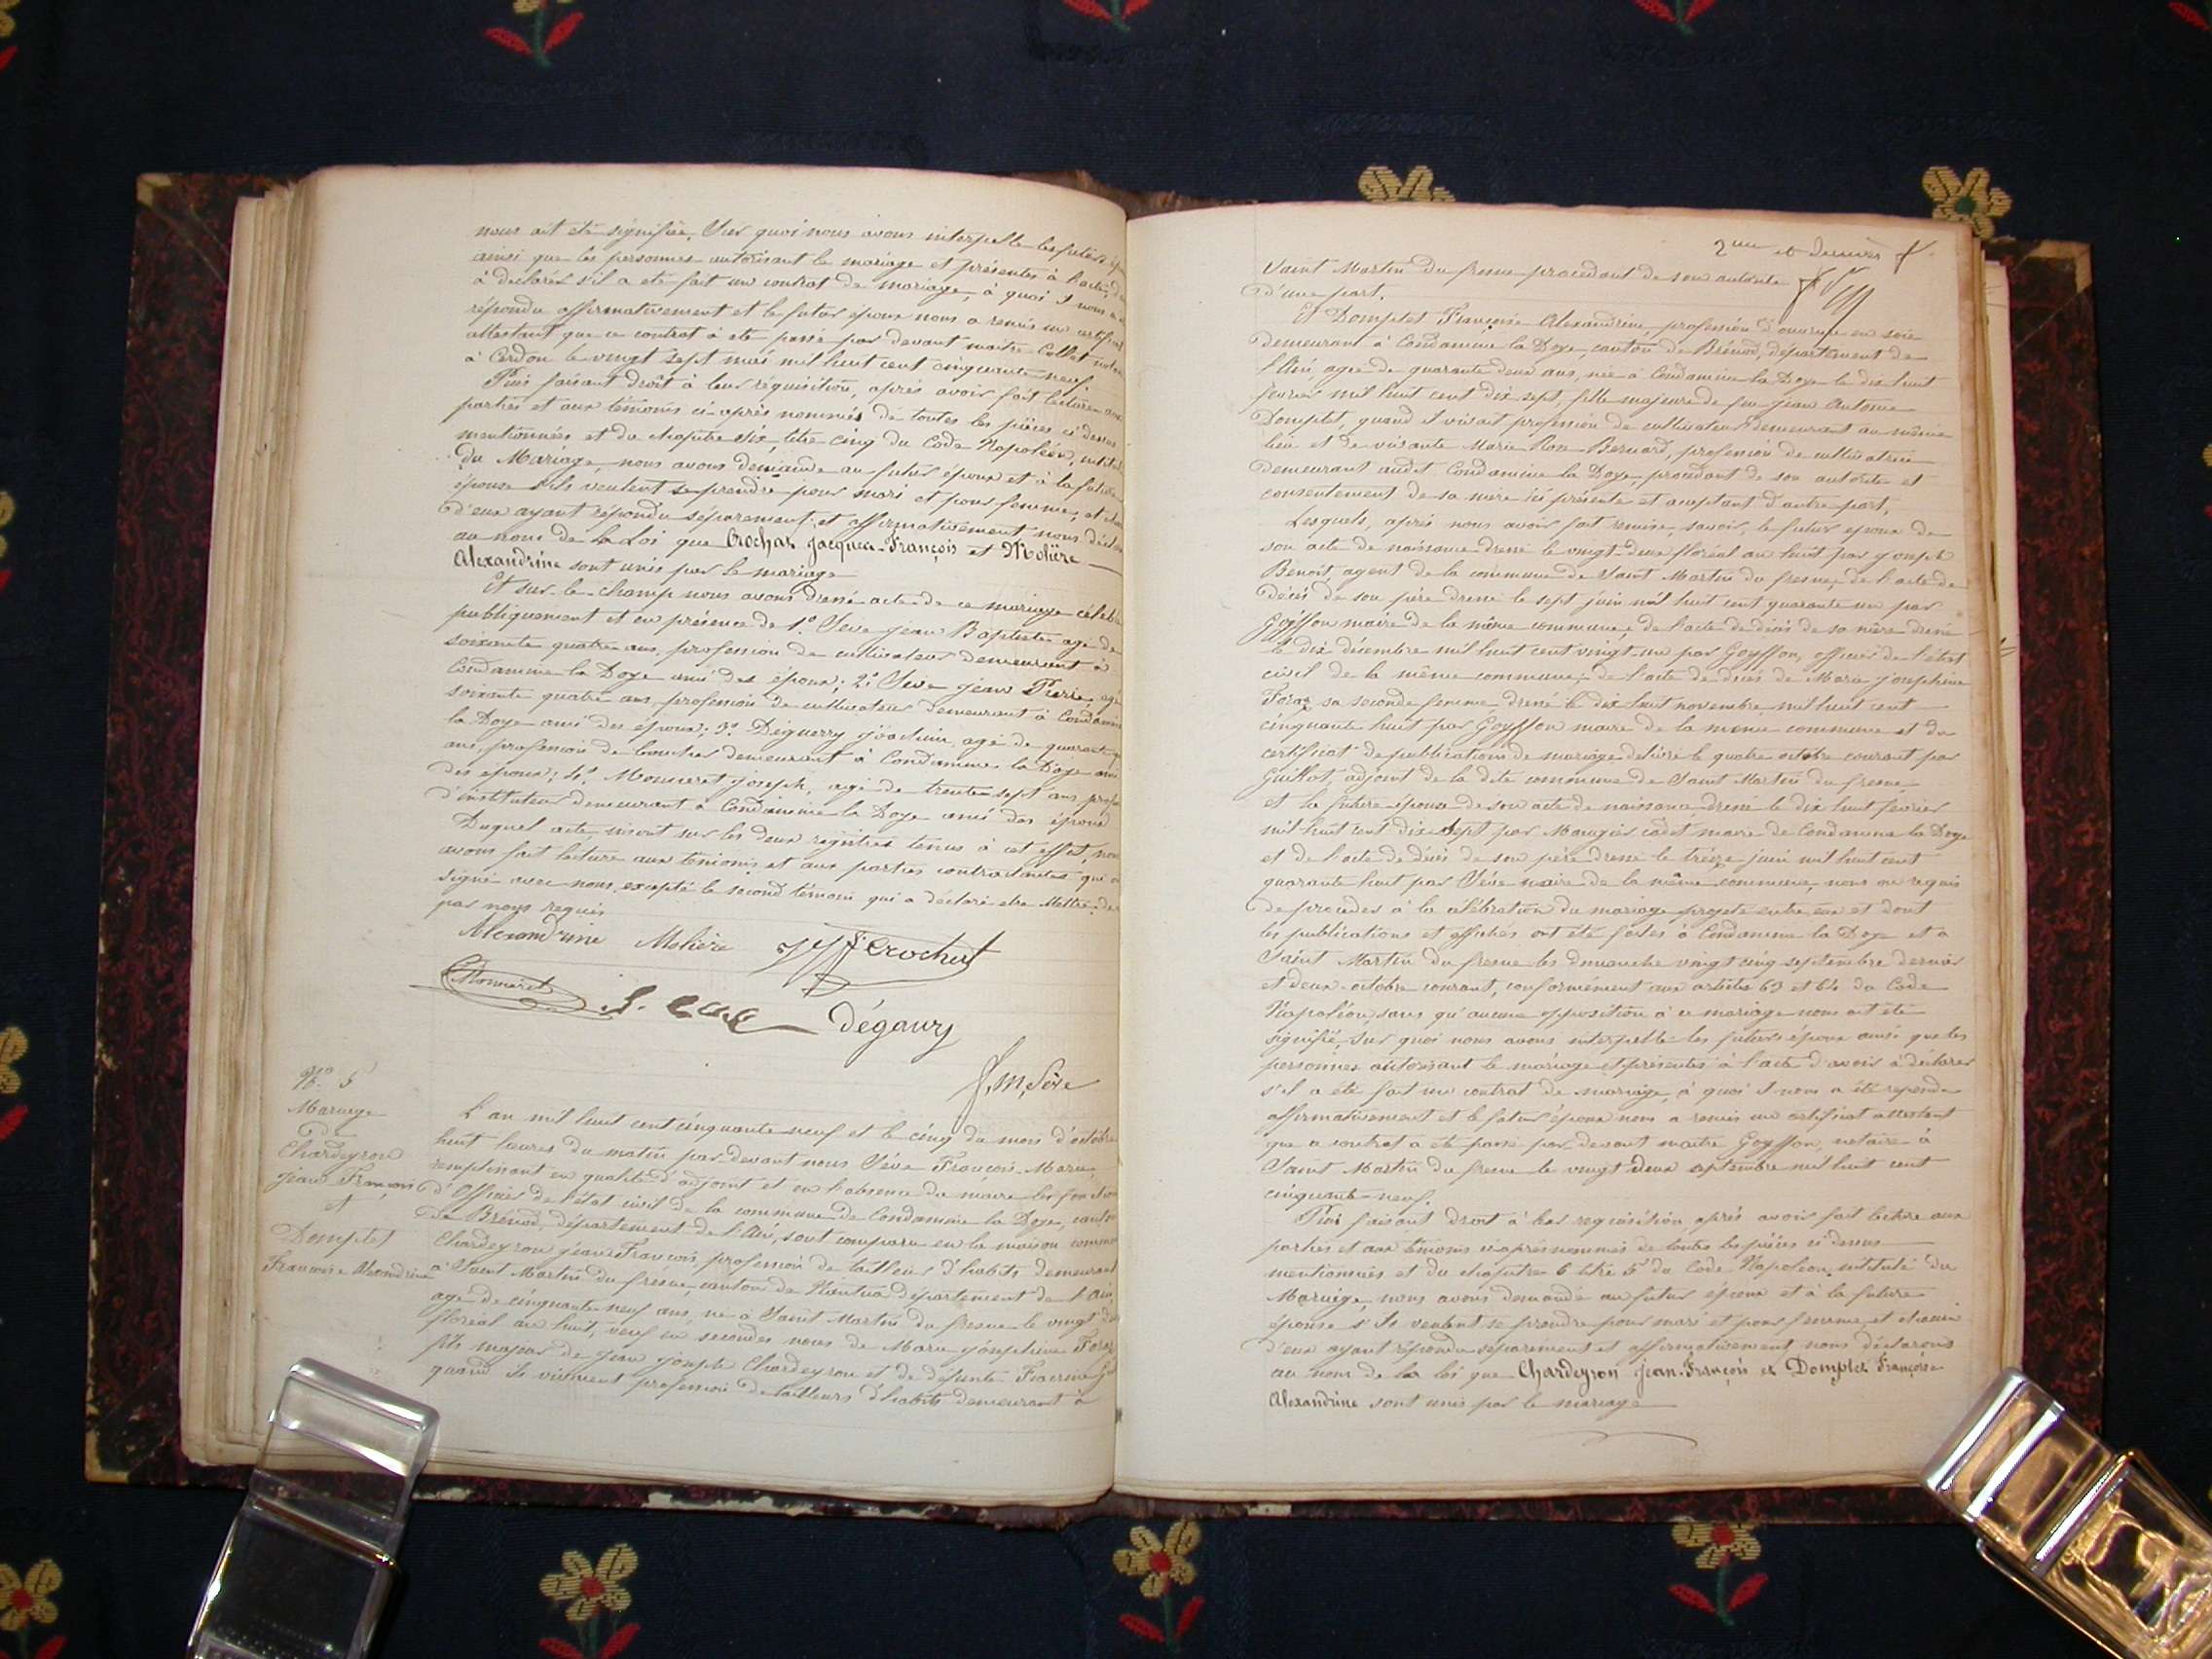 nous ait été signifiée. Sur quoi nous avons interpellé les futurs
ainsi que les personnes autorisant le mariage et présentes à l'acte
à declarer s'il a ete fait un contrat de mariage, à quoi il nous a
répondu affirmativement et le futur époux nous a remis un certificat
attestant que ce contrat à ete passé par devant maitre Collet notaire
à Cerdon le vingt sept mai mil huit cent cinquante neuf.
Puis faisant droit à leur réquisition, après avoir fait lecture aux
parties et aux témoins ci-après nommés de toutes les pièces ci dessus
mentionnées et du chapitre six, titre cinq du Code Napoléon, intitulé
Du Mariage, nous avons demandé au futur époux et à la future
épouse s'ils veulent se prendre pour mari et pour femme, et chacun
d'eux ayant répondu séparement et affirmativement nous déclarons
au nom de la Loi que Crochat Jacques-François et Molière
Alexandrine sont unis par le mariage
Et sur-le-champ nous avons dressé acte de ce mariage célébré
publiquement et en présence de 1° Sève jean Baptiste agé de
soixante quatre ans, profession de cultivateur demeurant à
Condamine la Doye ami des époux; 2° Sève jean Pierre, agé
soixante quatre ans, profession de cultivateur demeurant à Condamine
la Doye ami des époux; 3° Déguerry joachim, agé de quarante
ans, profession de boucher demeurant à Condamine la Doye ami
des époux; 4° Monneret joseph, agé de trente sept ans profession
d'instituteur demeurant à Condamine la Doye ami des époux
Duquel acte, inscrit sur les deux registres tenus à cet effet, nous
avons fait lecture aux témoins et aux parties contractantes qui ont
signé avec nous excepté le second témoin qui a déclaré etre illettré de
par nous requis
Alexandrine Molière Crochat
Monneret Dégaury
J. M. Sève
N° 5
Mariage
de
Chardeyron
jean François
et
Domplet
Françoise Alexandrine
L'an mil huit cent cinquante neuf et le cinq du mois d'octobre
huit heures du matin par-devant nous Sève François-Marie,
remplissant en qualité d'adjoint et en l'absence du maire les fonctions
d'Officier de l'état civil de la commune de Condamine la Doye, canton
de Brénod, département de l'Ain, sont comparu en la maison commune
Chardeyron jean François profession de tailleur d'habits demeurant
à Saint Martin du frêne, canton de Nantua département de l'Ain,
agé de cinquante neuf ans, né à Saint Martin du fresne le vingt deux
floréal an huit, veuf en secondes noces de Marie joséphine Foraz
fils majeur de jean joseph Chardeyron et de défunte
quand ils vivaient profession de tailleurs d'habits demeurant à
2me et dernier f.
Saint Martin du fresne procédant de son autorité
D'une part.
Et Domplet Françoise Alexandrine, profession d'ouvrière en soie
demeurant à Condamine la Doye, canton de Brénod, département de
l'Ain, agée de quarante deux ans, née à Condamine la Doye le dix huit
fevrier mil huit cent dix sept, fille majeure de feu jean Antoine
Domplet, quand il vivait profession de cultivateur demeurant au même
lieu et de vivante Marie Rose Bernard, profession de cultivatrice
demeurant audit Condamine la Doye, procédant de son autorité et
consentement de sa mere ici présente et acceptant d'autre part,
Lesquels, après nous avoir fait remise, savoir, le futur époux de
son acte de naissance dressé le vingt-deux floréal an huit par joseph
Benoit, agent de la commune de Saint Martin du fresne, de l'acte de
décès de son père dressé le sept juin mil huit cent quarante un par
Goyffon maire de la même commune, de l'acte de décès de sa mère dressé
le dix décembre mil huit cent vingt-un par Goyffon, officier de l'état
civil de la même commune, de l'acte de décès de Marie joséphine
Foraz sa seconde femme dressé le dix huit novembre mil huit cent
cinquante huit par Goyffon maire de la même commune et du
certificat de publications de mariage délivré le quatre octobre courant par
Guillot, adjoint de la dite commune de Saint Martin du fresne
et la future épouse de son acte de naissance dressé le dix huit fevrier
mil huit cent dix-sept par Maugier cadet maire de Condamine la Doye
et de l'acte de décès de son père dressé le treize juin mil huit cent
quarante huit par Sève maire de la même commune, nous ont requis
de procéder à la célébration du mariage projeté entre eux et dont
les publications et affiches ont été faites à Condamine la Doye et à
Saint Martin du fresne les dimanche vingt cinq septembre dernier
et deux octobre courant, conformement aux articles 63 et 64 du Code
Napoléon, sans qu'aucune opposition à ce mariage nous ait été
signifié, Sur quoi nous avons interpellé les futurs époux ainsi que les
personnes autorisant le mariage et présentes à l'acte d'avoir à déclarer
s'il a été fait un contrat de mariage à quoi il nous a été répondu
affirmativement et le futur époux nous a remis un certificat attestant
que ce contrat a été passé par-devant maitre Goyffon, notaire à
Saint Martin du fresne le vingt deux septembre mil huit cent
cinquante-neuf.
Puis faisant droit à leur réquisition, après avoir fait lecture aux
parties et aux témoins ci-après nommés de toutes les pièces ci dessus
mentionnées et du chapitre 6 titre 5 du Code Napoléon, intitulé du
Mariage, nous avons demandé au futur époux et à la future
épouse s'ils veulent se prendre pour mari et pour femme, et chacun
d'eux ayant répondu séparement et affirmativement nous déclarons
au nom de la loi que Chardeyron Jean-François et Domplet Françoise
Alexandrine sont unis par le mariage